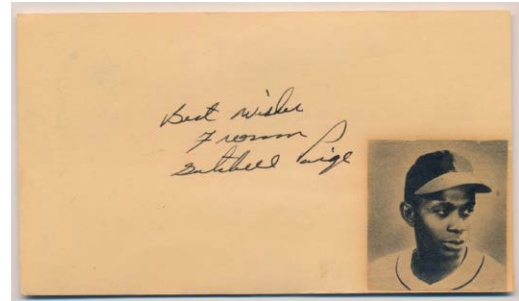 Best wishes
From
Satchell Paige